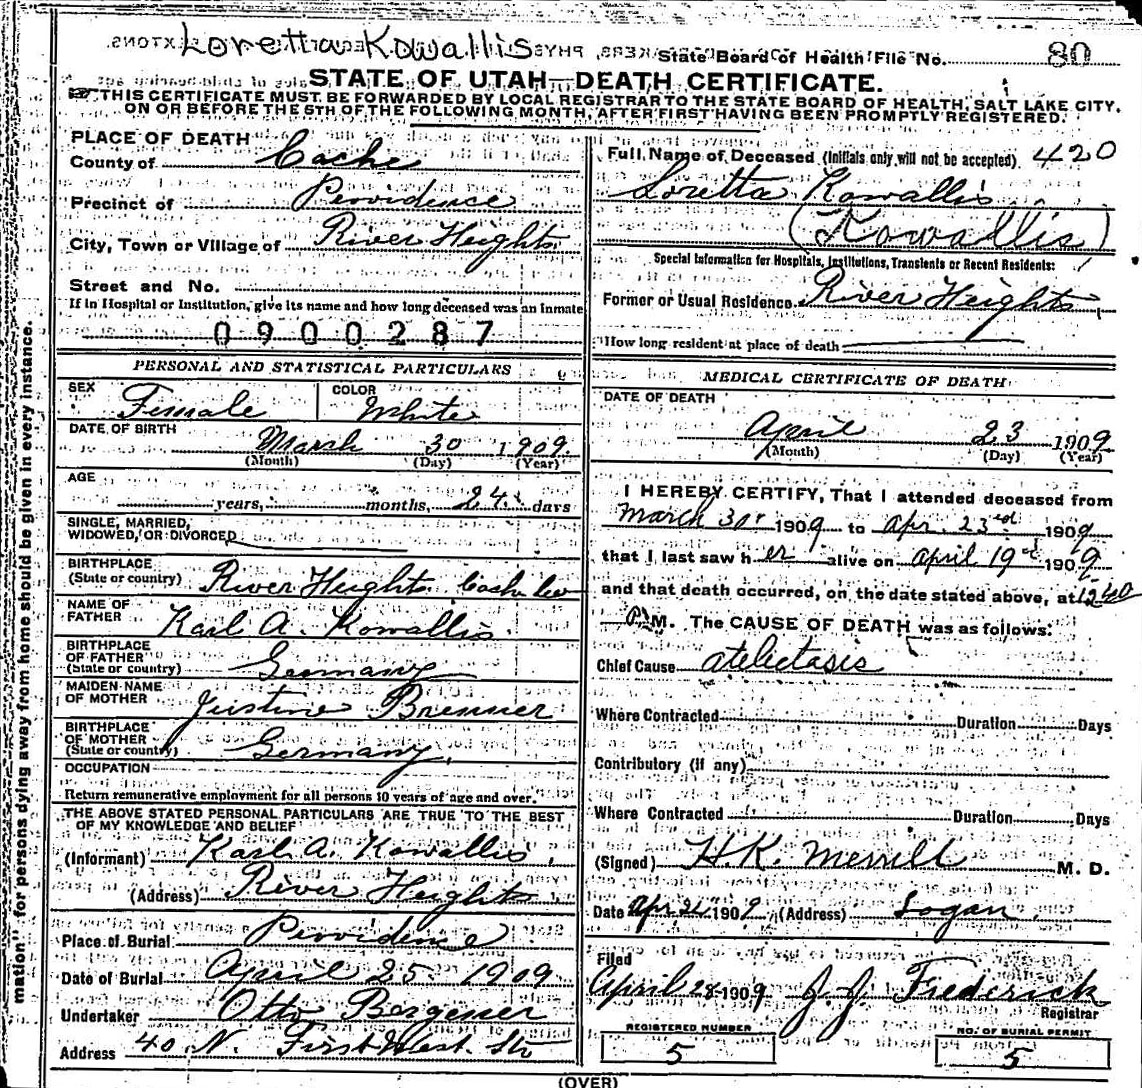 Loretta Kowallis
State Board of Health File No. 80
STATE OF UTAH—DEATH CERTIFICATE.
THIS CERTIFICATE MUST BE FORWARDED BY LOCAL REGISTRAR TO THE STATE BOARD OF HEALTH, SALT LAKE CITY,
ON OR BEFORE THE 5TH OF THE FOLLOWING MONTH, AFTER FIRST HAVING BEEN PROMPTLY REGISTERED.
PLACE OF DEATH
County of Cache
Precinct of Providence
City, Town or Village of River Heights
Street and No.
If in Hospital or Institution, give its name and how long deceased was an inmate
0900287
PERSONAL AND STATISTICAL PARTICULARS
SEX Female COLOR White
DATE OF BIRTH
March 30 1909
(Month) (Day) (Year)
AGE
years, months, 24 days
SINGLE, MARRIED,
WIDOWED, OR DIVORCED
BIRTHPLACE
(State or country) River Heights Cash
NAME OF
FATHER Karl A. Kowallis
BIRTHPLACE
OF FATHER
(State or country) Germany
MAIDEN NAME
OF MOTHER Justine Brenner
BIRTHPLACE
OF MOTHER
(State or country) Germany
OCCUPATION
Return remunerative employment for all persons 10 years of age and over.
THE ABOVE STATED PERSONAL PARTICULARS ARE TRUE TO THE BEST
OF MY KNOWLEDGE AND BELIEF
(Informant) Karl A. Kowallis
(Address) River Heights
Place of Burial Providence
Date of Burial April 25 1909
Undertaker Otto
Address 40 N. First West. Str
Full Name of Deceased (Initials only will not be accepted) 420
Loretta Kowallis
(Kowallis)
Special Information for Hospitals, Institutions, Transients or Recent Residents:
Former or Usual Residence River Heights
How long resident at place of death
MEDICAL CERTIFICATE OF DEATH
DATE OF DEATH
April 23 1909
(Month) (Day) (Year)
I HEREBY CERTIFY, That I attended deceased from
March 30 1909 to Apr. 23rd 1909
that I last saw her alive on April 19 1909
and that death occurred, on the date stated above, at 1240
P M. The CAUSE OF DEATH was as follows:
Chief Cause atelictasis
Where Contracted Duration Days
Contributory (if any)
Where Contracted Duration Days
(Signed) H.K. Merrill M. D.
Date Apr 1909 (Address) Logan
Filed
April 28 1909 J. J. Frederick
Registrar
REGISTERED NUMBER
5
NO. OF BURIAL PERMIT
5
(OVER)
mation" for persons dying away from home should be given in every instance.